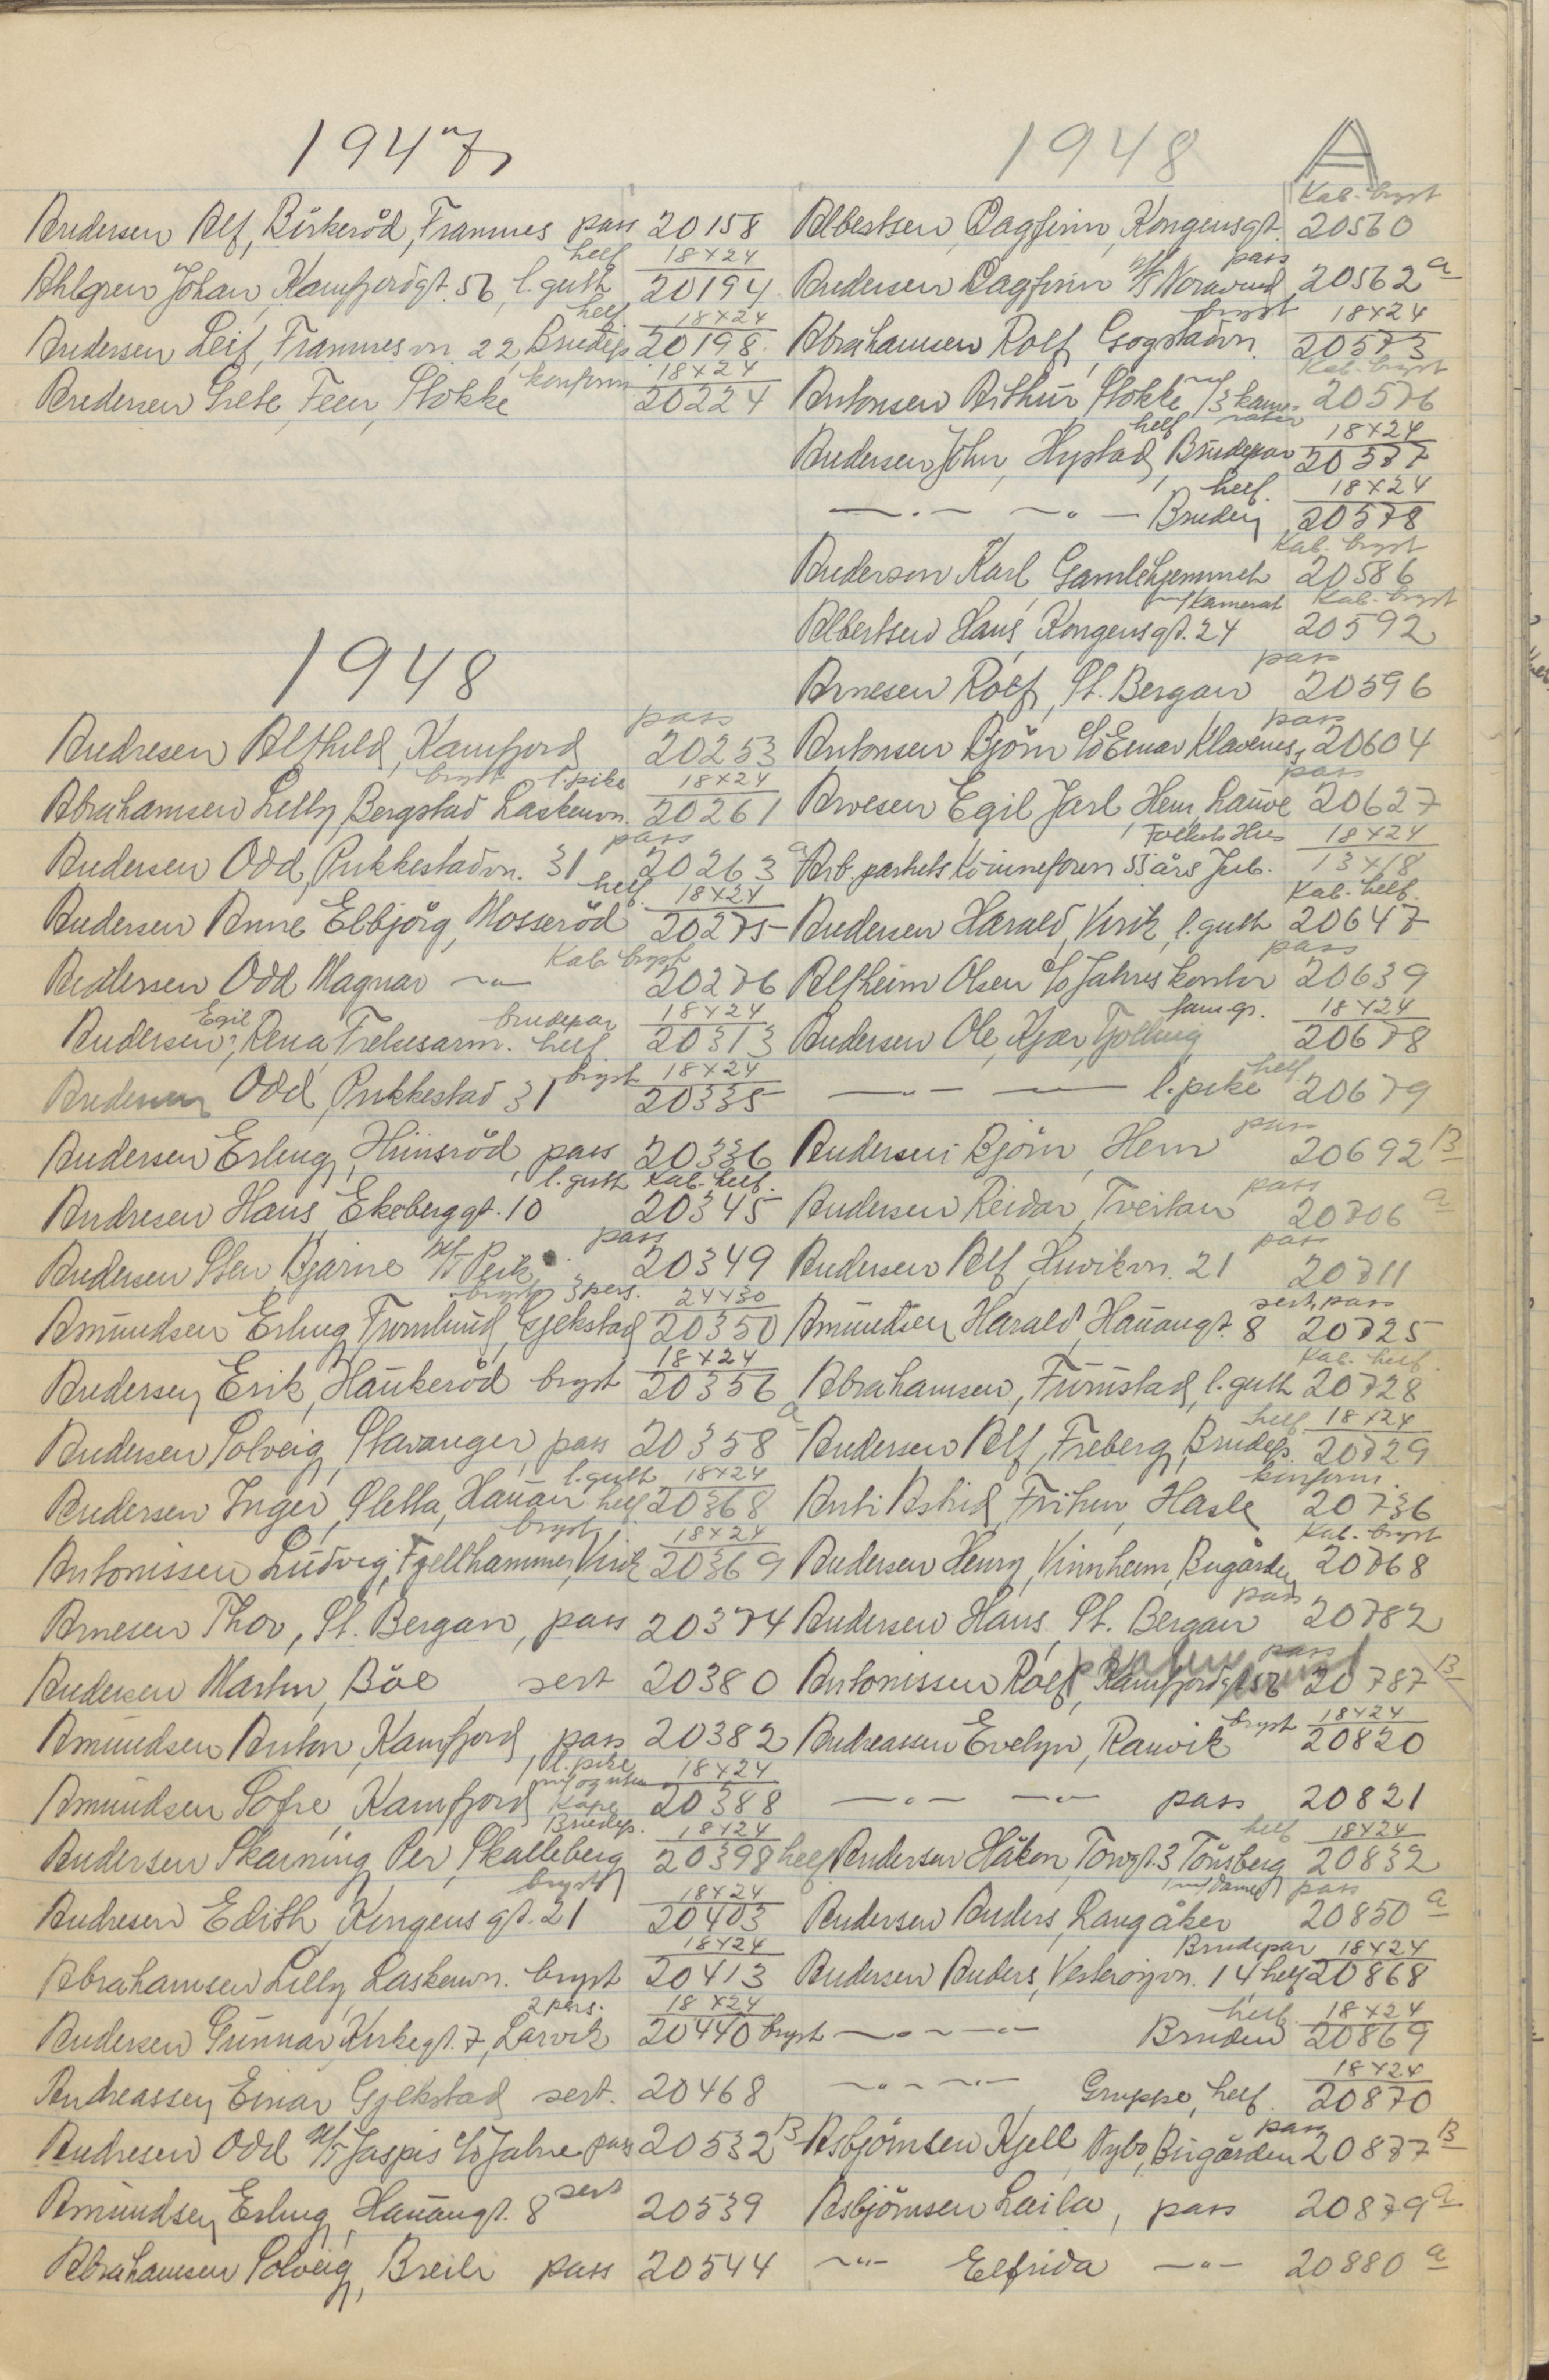 1947
Andersen Alf, Birkeröd, Framnes pass 20158
Ahlgren Johan, Kamfjordgt. 56, l. gutt helf 18x24 20194
Andersen Leif, Framnesvn. 22, Brudep. helf 18x24 20198
Andersen Grete, Feen, Stokke konfirm 18x24 20224
1948
Andresen Alfhild, Kamfjord pass 20253
Abrahamsen Lilly, Bergstad Laskenvn. bryst l. pike 18x24 20261
Andersen Odd, Pukkestadvn. 31 pass 20263 a
Andersen Anne Elbjörg, Mosseröd helf. 18x24 20275
Andersen Odd Magnar -"- Kab. bryst 20276
Andersen, Egil, Rena Frelsesarm. brudepar helf. 18x24 20313
Andersen Odd, Pukkestad 31 bryst 18x24 20335
Andersen Erling, Hinsröd, pass 20336
Andresen Hans, Ekeberggt. 10 l. gutt Kab. helf. 20345
Andersen Sten Bjarne M/T Peik pass 20349
Amundsen Erling, Tromlund, Gjekstad bryst 3 pers. 24x30 20350
Andersen, Erik, Haukeröd bryst 18x24 20356
Andersen Solveig, Stavanger, pass 20358 a
Andersen Inger, Sletta, Hauan l. gutt helf 18x24 20368
Antonissen Ludvig, Fjellhammer, Virik bryst 18x24 20369
Arnesen Thor, St. Bergan, pass 20374
Andersen Martin, Böe sert 20380
Amundsen Anton, Kamfjord pass 20382
Amundsen Sofie, Kamfjord l. pike m/ og uten Kåpe 18x24 20388
Andersen Skarning Per, Skalleberg Brudep. 18x24 20398 helf
Andresen Edith, Kongensgt. 21 bryst 18x24 20403
Abrahamsen Lilly Laskenvn. bryst 18x24 20413
Andersen Gunnar, Kirkegt. 7, Larvik 2 pers. 18x24 20440 bryst
Andreassen Einar Gjekstad sert. 20468
Andresen Odd M/T Jaspis c/o Jahre pass 20532 B
Amundsen Erling, Hauangt. 8 sert 20539
Abrahamsen Solveig, Breili pass 20544
1948 A
Albertsen, Dagfinn, Kongensgt. Kab. bryst 20560
Andersen Dagfinn M/S Norsvind pass 20562 a
Abrahamsen Rolf, Gogstadvn. bryst 18x24 20573
Antonsen Arthur, Stokke m/ 3 kamerater Kab. bryst 20576
Andersen John, Hystad, Brudepar helf 18x24 20577
-"- -"- Bruden helf. 18x24 20578
Anderson Karl Gamlehjemmet Kab. bryst 20586
Albertsen Hans, Kongensgt. 24 m/ kamerat Kab. bryst 20592
Arnesen Rolf, St. Bergan pass 20596
Antonsen Björn c/o Einar Klavenes, pass 20604
Arvesen Egil Jarl Hem, Lauve pass 20627
Arb. partiets Kvinneforen 35 års Jub. Folkets Hus 18x24 13x18
Andersen Harald, Virik, l. gutt Kab. helf. 20647
Altheim Olsen c/o Jahres kontor pass 20639
Andersen Ole, Kjær, Tjølling fam. gr. 18x24 20678
-"- -"- l. pike helf 20679
Andersen Björn, Hem pass 20692 B
Andersen Reidar, Tveitan pass 20706 a
Andersen Alf, Huvikvn. 21 pass 20711
Amundsen Harald, Hauangt. 8 sert, pass 20725
Abrahamsen, Furustad, l. gutt Kab. helf. 20728
Andersen Alf, Freberg, Brudep. helf. 18x24 20729
Anti Astrid, Frihen, Hasle konfirm. 20736
Andersen Henry, Vinnheim, Bugården Kab. bryst 20768
Andersen Hans, St. Bergan pass 20782
Antonissen Rolf, Kamfjordgt. 56 pass 20787 B
Andreassen Evelyn, Ranvik bryst 18x24 20820
-"- -"- pass 20821
Andersen Håkon, Torvgt. 3 Tönsberg helf 18x24 20832
Andersen Anders, Langåker m/ dame pass 20850 a
Andersen Anders, Vesteröyvn. 14 Brudepar helf 18x24 20868
-"- -"- Bruden helf. 18x24 20869
-"- -"- Gruppe, helf. 18x24 20870
Asbjörnsen Kjell Nybo, Bugården pass 20877 B
Asbjörnsen Laila, pass 20879 a
-"- Elfrida -"- 20880 a